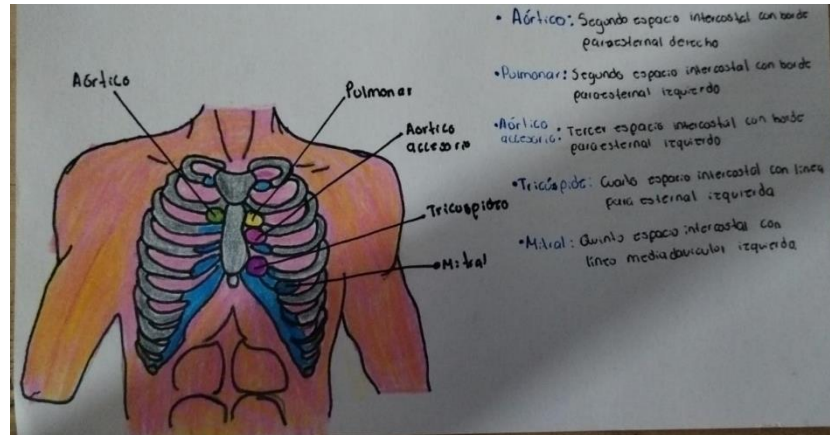 Aórtico
Pulmonar
Aortico
accesorio
Tricuspideo
Mitral
• Aórtico: Segundo espacio intercostal con borde
paraesternal derecho
• Pulmonar: Segundo espacio intercostal con borde
paraesternal izquierdo
• Aórtico accesorio: Tercer espacio intercostal con borde
paraesternal izquierdo
• Tricúspide: Cuarto espacio intercostal con linea
para esternal izquierda
• Mitral: Quinto espacio intercostal con
linea mediaclavicular izquierda